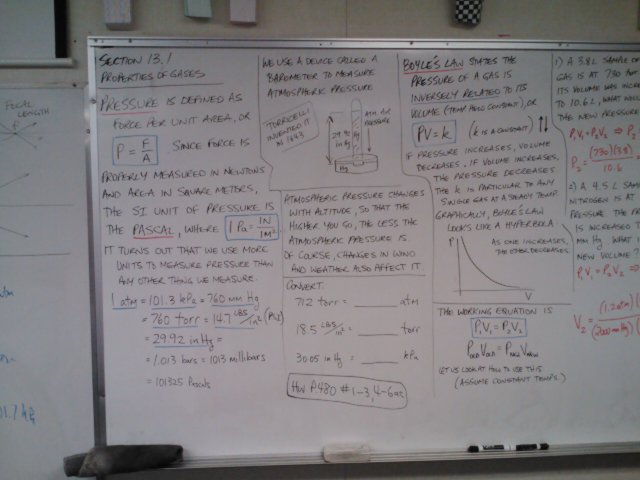 FOCAL
LENGTH
SECTION 13.1
PROPERTIES OF GASES
PRESSURE IS DEFINED AS
FORCE PER UNIT AREA, OR
P = F/A SINCE FORCE IS
PROPERLY MEASURED IN NEWTONS
AND AREA IN SQUARE METERS,
THE SI UNIT OF PRESSURE IS
THE PASCAL, WHERE 1 Pa = 1N/1M²
IT TURNS OUT THAT WE USE MORE
UNITS TO MEASURE PRESSURE THAN
ANY OTHER THING WE MEASURE.
1 atm = 101.3 kPa = 760 mm Hg
= 760 torr = 14.7 LBS/in² (PSI)
= 29.92 in Hg =
= 1.013 bars = 1013 millibars
= 101325 Pascals
WE USE A DEVICE CALLED A
BAROMETER TO MEASURE
ATMOSPHERIC PRESSURE
TORRICELLI
INVENTED IT
IN 1643
29.92
in Hg
Hg
ATM. AIR
PRESSURE
ATMOSPHERIC PRESSURE CHANGES
WITH ALTITUDE, SO THAT THE
HIGHER YOU GO, THE LESS THE
ATMOSPHERIC PRESSURE IS.
OF COURSE, CHANGES IN WIND
AND WEATHER ALSO AFFECT IT.
CONVERT:
712 torr = ____ atm
18.5 LBS/in² = ____ torr
30.05 in Hg = ____ kPa
HW P.480 #1-3, 4-6
BOYLE'S LAW STATES THE
PRESSURE OF A GAS IS
INVERSELY RELATED TO ITS
VOLUME (TEMP HELD CONSTANT), OR
PV = k (k IS A CONSTANT)
IF PRESSURE INCREASES, VOLUME
DECREASES, IF VOLUME INCREASES,
THE PRESSURE DECREASES
THE k IS PARTICULAR TO ANY
SINGLE GAS AT A STEADY TEMP.
GRAPHICALLY, BOYLE'S LAW
LOOKS LIKE A HYPERBOLA
P
AS ONE INCREASES,
THE OTHER DECREASES.
V
THE WORKING EQUATION IS
P₁V₁ = P₂V₂
POLD VOLD = PNEW VNEW
LET US LOOK AT HOW TO USE THIS
(ASSUME CONSTANT TEMPS.)
1) A 3.8 L SAMPLE OF
GAS IS AT 730 torr
ITS VOLUME WAS INCREASED
TO 10.6 L, WHAT WOULD
THE NEW PRESSURE
P₁V₁ = P₂V₂ ⇒ P₂
P₂ = (730)(3.8)/10.6
2) A 4.5 L SAMPLE
NITROGEN IS AT
PRESSURE THE
IS INCREASED T
MM Hg. WHAT
NEW VOLUME?
P₁V₁ = P₂V₂
V₂ =